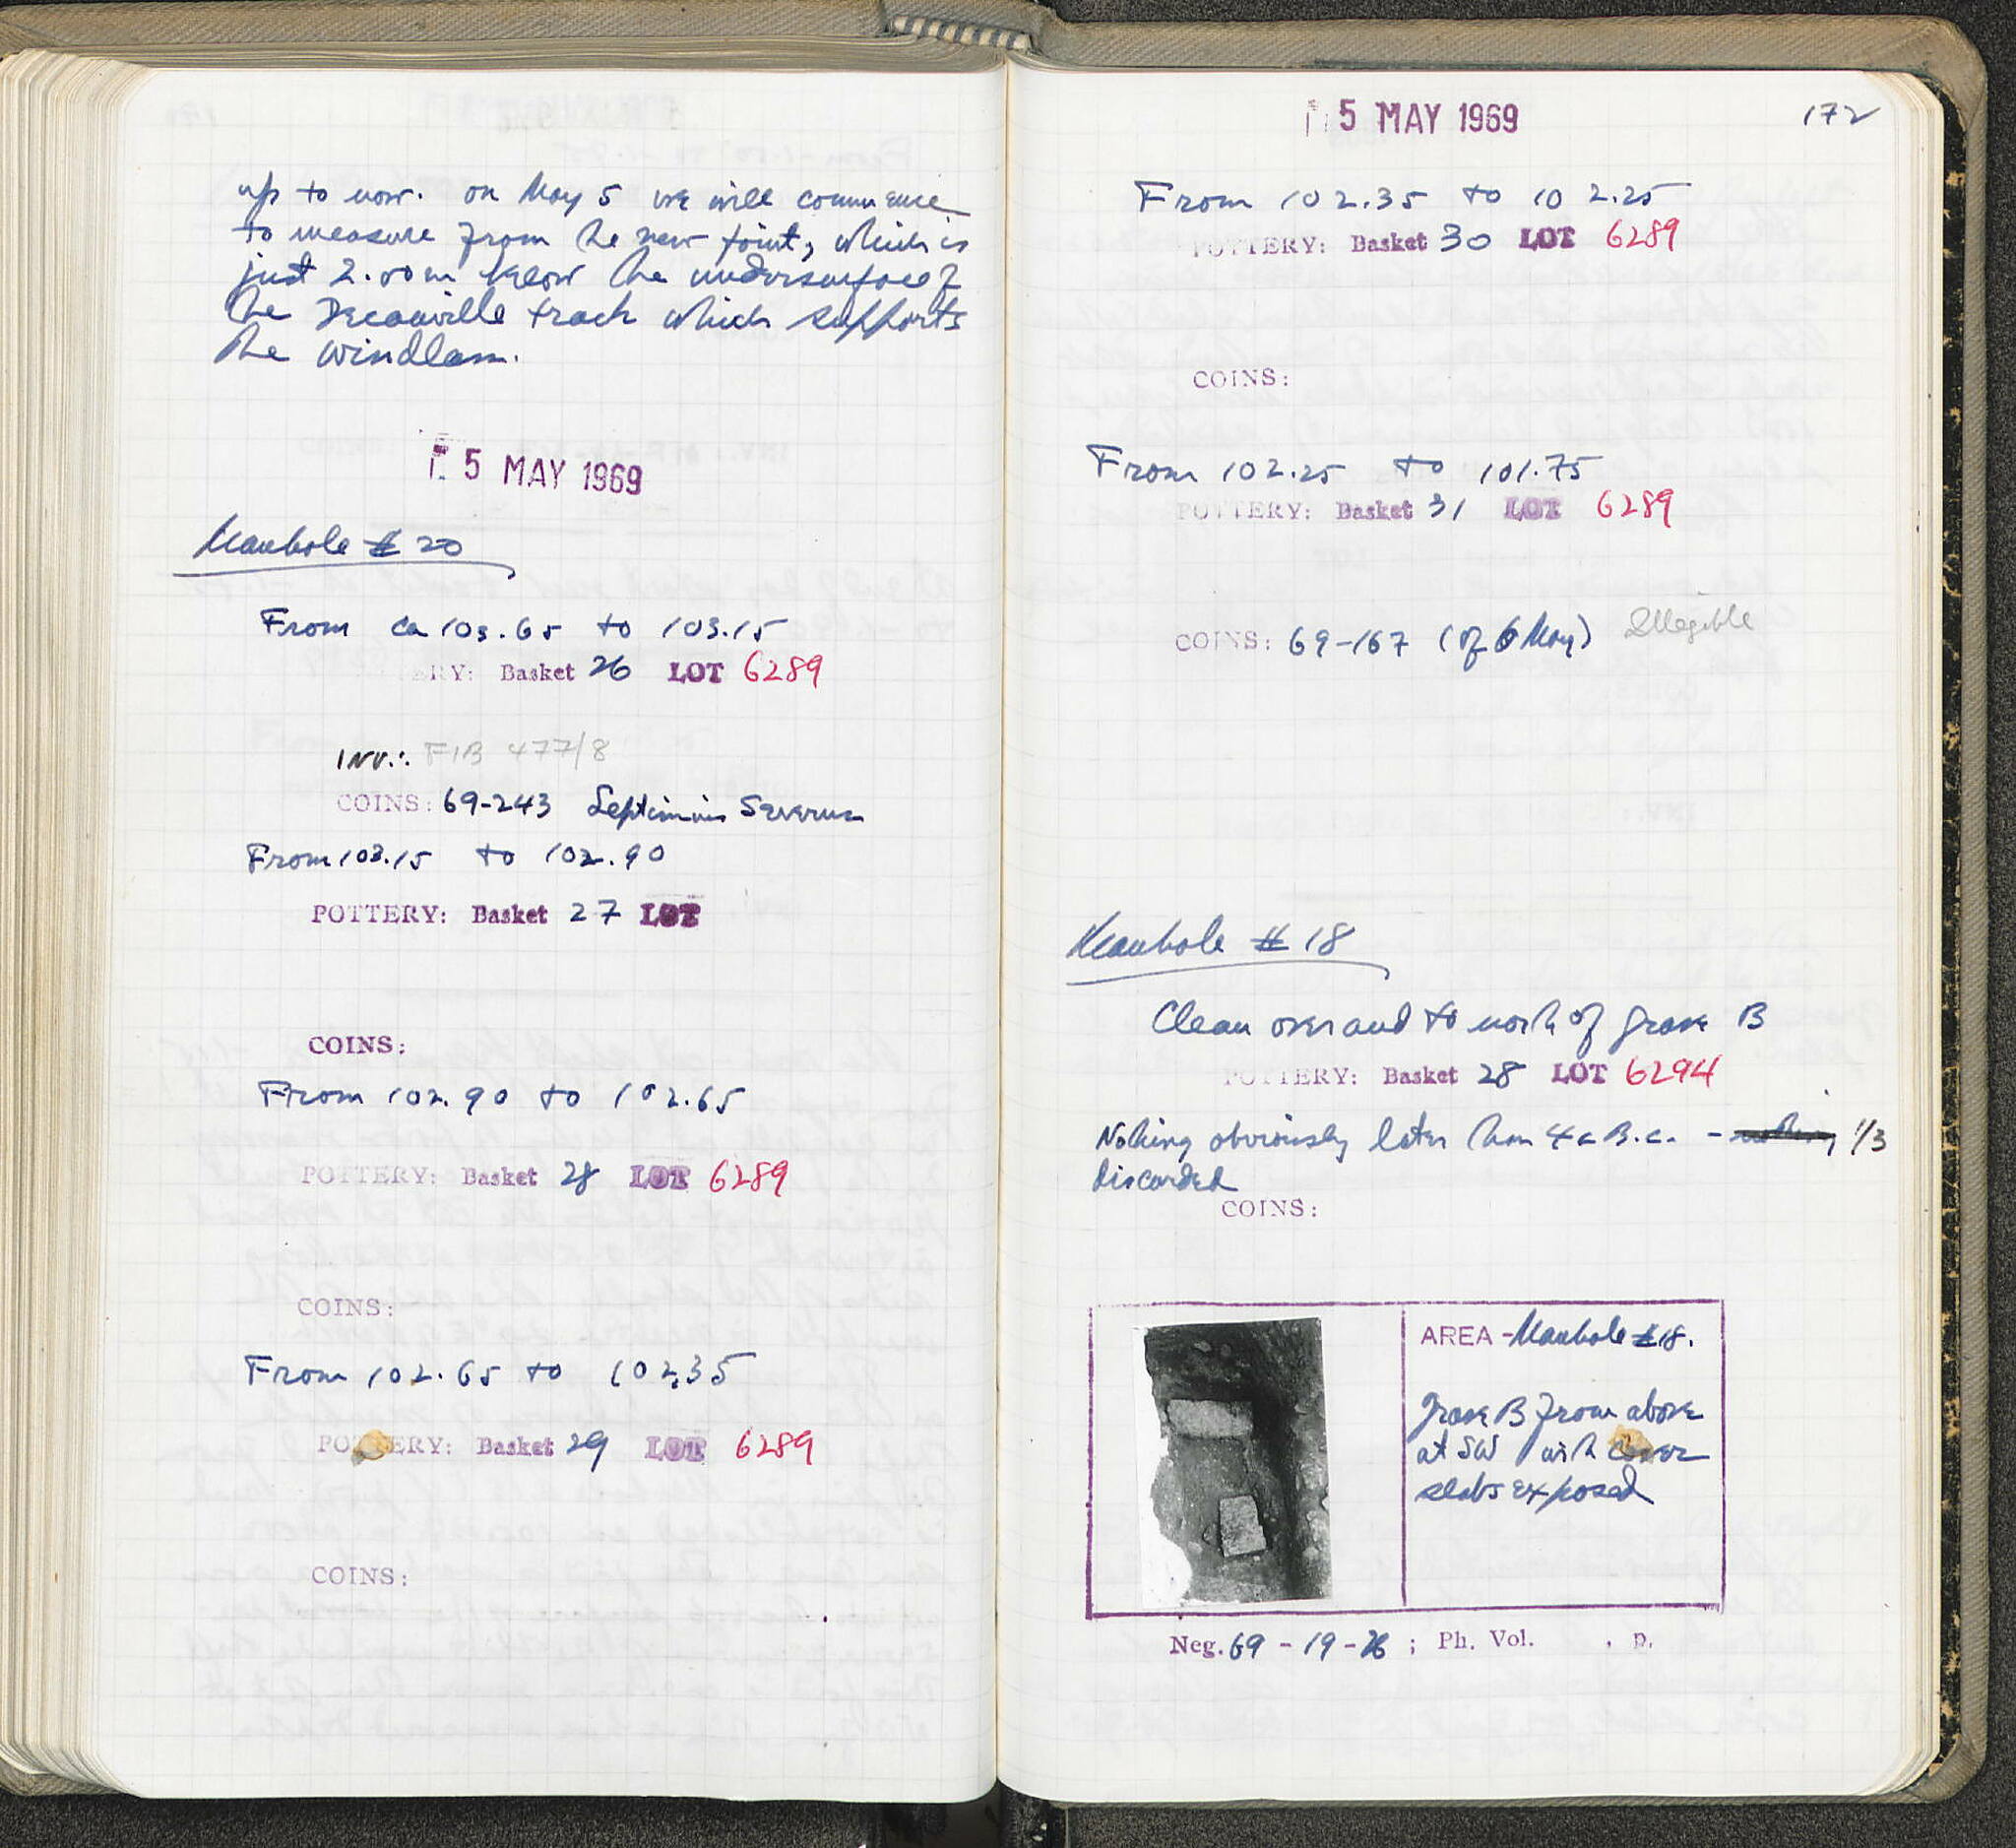 up to now. on May 5 we will commence
to measure from the new point, which is
just 2.00m below the undersurface of
the Decauville track which supports
the windlass.
5 MAY 1969
Manhole # 20
From ca 103.65 to 103.15
ERY: Basket 26 LOT 6289
INV.: FIB 477/8
COINS: 69-243 Septimius Severus
From 103.15 to 102.90
POTTERY: Basket 27 LOT
COINS:
From 102.90 to 102.65
POTTERY: Basket 28 LOT 6289
COINS:
From 102.65 to 102.35
POTTERY: Basket 29 LOT 6289
COINS:
5 MAY 1969
172
From 102.35 to 102.25
POTTERY: Basket 30 LOT 6289
COINS:
From 102.25 to 101.75
POTTERY: Basket 31 LOT 6289
COINS: 69-167 (of 6 May) Illegible
Manhole # 18
Clean over and to north of grave B
POTTERY: Basket 28 LOT 6294
Nothing obviously later than 4c B.C. - 1/3
discarded
COINS:
AREA - Manhole #18.
Grave B from above
at SW with cover
slabs exposed
Neg. 69-19-26 ; Ph. Vol. , p.